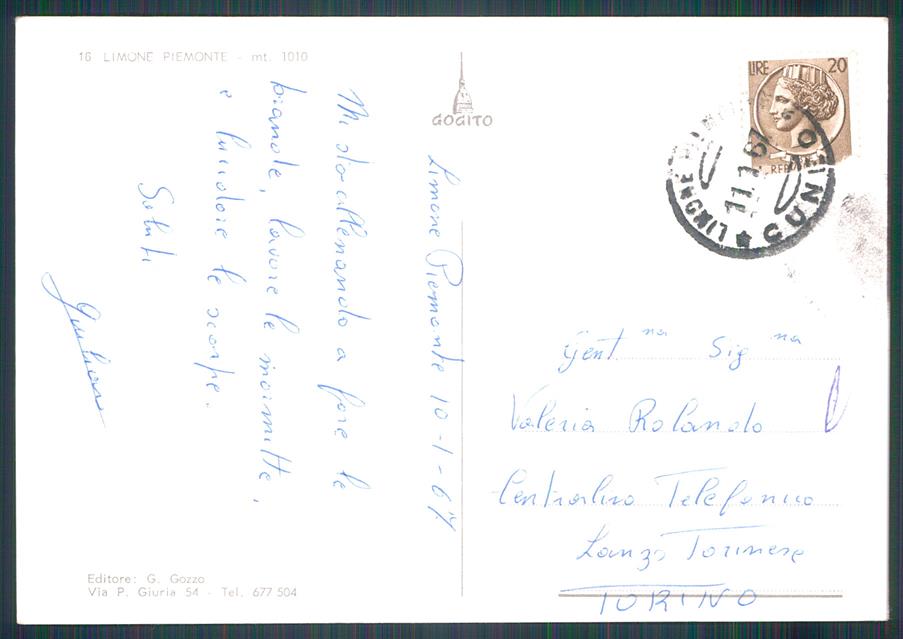 16 LIMONE PIEMONTE - mt. 1010
GOGITO
LIRE 20
11.1.67
LIMONE
CUNEO
Limone Piemonte 10-1-67
Mi sto allenando a fare le
brande, lavare le marmitte,
e lucidare le scarpe.
Saluti
Giuliano
Gent.na Sig na
Valeria Rolando
Centralino Telefonico
Lanzo Torinese
TORINO
Editore: G. Gozzo
Via P. Giuria 54 - Tel. 677 504